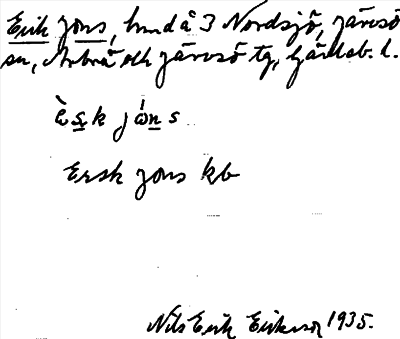 Erik Jons, hmd å 3 Nordsjö, Järvsö
sn, Arbrå och Järvsö tg, Gävleb. l.
È s k j ó n s
Ersk Jons kb
Nils Erik Eriksson 1935.